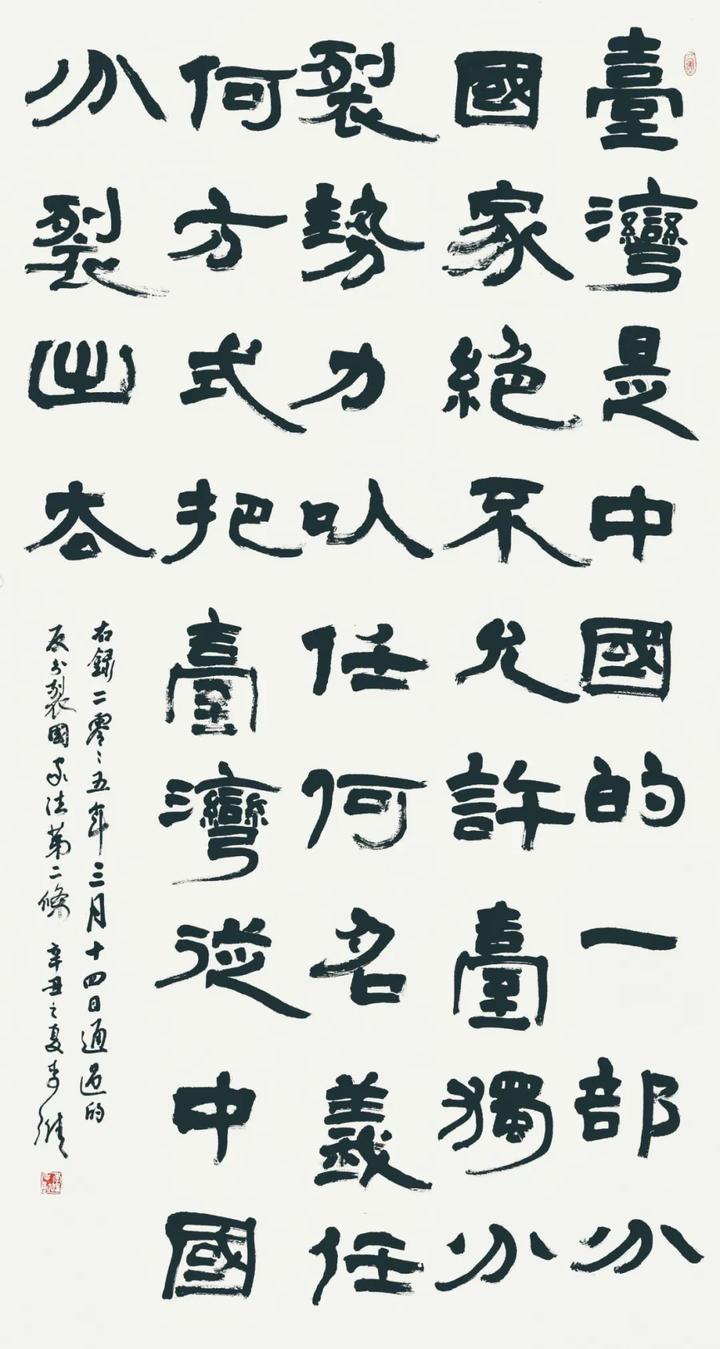 臺灣是中國的一部分
國家絕不允許臺獨分
裂勢力以任何名義任
何方式把臺灣從中國
分裂出去
右錄二零〻五年三月十四日通過的
反分裂國家法第二條 辛丑之夏李